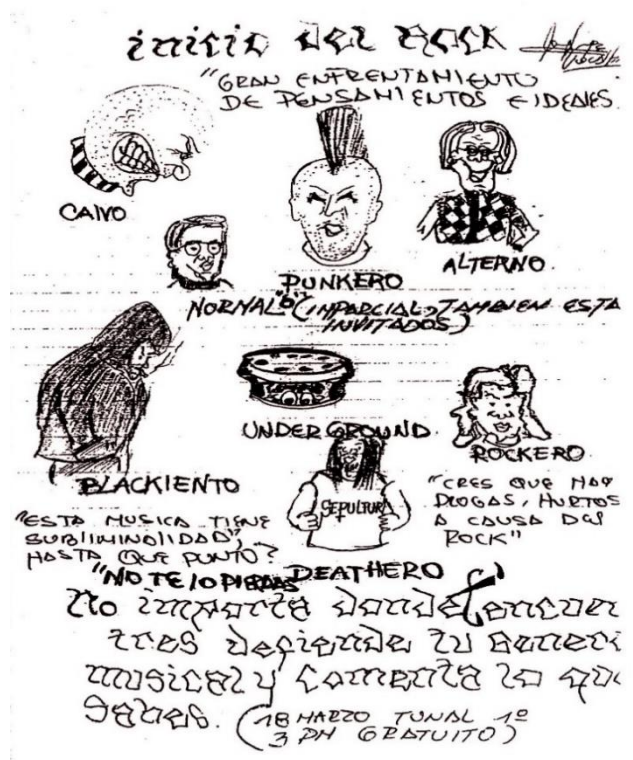 inicio del Rock
"GRAN ENFRENTAMIENTO
DE PENSAMIENTOS E IDEALES.
CALVO
PUNKERO
ALTERNO
NORMAL "O" (IMPARCIAL, TAMBIEN ESTA
INVITADOS)
UNDERGROUND
ROCKERO
BLACKIENTO
SEPULTURA
"CRES QUE HAY
DROGAS, HURTOS
A CAUSA DEL
ROCK"
"ESTA MUSICA TIENE
SUBLIMINALIDAD",
HASTA QUE PUNTO?
"NO TE LO PIERDAS"
DEATHERO
No importa donde t encuen
tres defiende tu generi
musical y comenta lo que
sabes. (18 MARZO TUNAL 1º
3 PM GRATUITO)